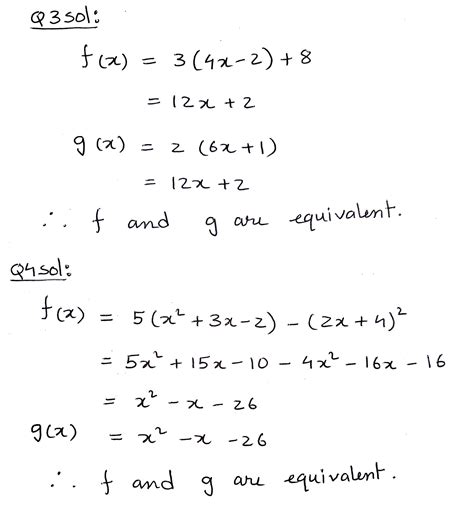 Q3 sol:
f(x) = 3(4x-2)+8
= 12x+2
g(x) = 2 (6x+1)
= 12x+2
∴ f and g are equivalent.
Q4 sol:
f(x) = 5(x²+3x-2) - (2x+4)²
= 5x²+15x-10 - 4x²-16x-16
= x²-x-26
g(x) = x²-x-26
∴ f and g are equivalent.